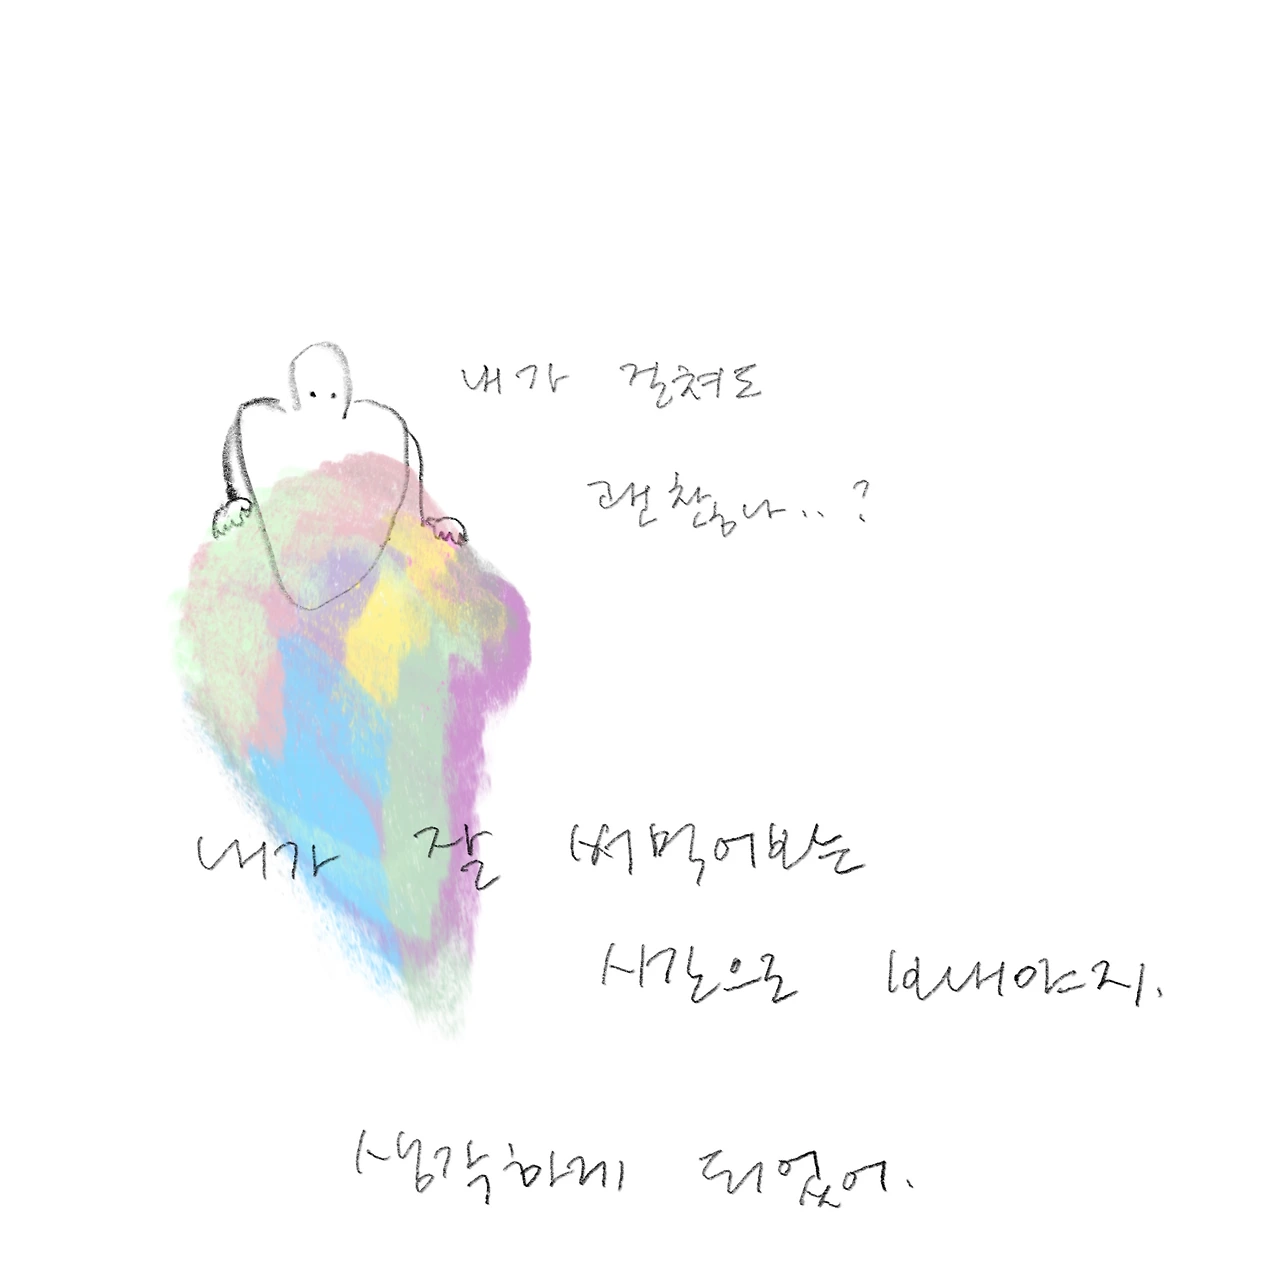 내가 걸쳐도
괜찮나..?
내가 잘 써먹어보는
시간으로 보내야지.
생각하게 되었어.